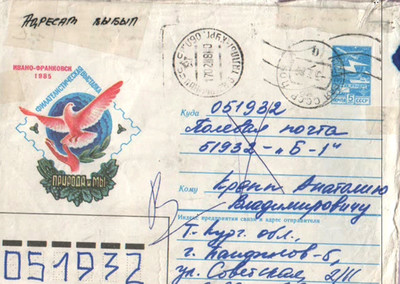 Адресат выбыл
ИВАНО-ФРАНКОВСК
1985
ФИЛАТЕЛИСТИЧЕСКАЯ ВЫСТАВКА
ПРИРОДА И МЫ
ПОЧТА
5 СССР
Куда 051932
Полевая почта
51932-„Б-1"
Кому
Анатолию
Владимировичу
Индекс предприятия связи и адрес отправителя
Т-Кург. обл.,
ул. Советская, 2/11
051932